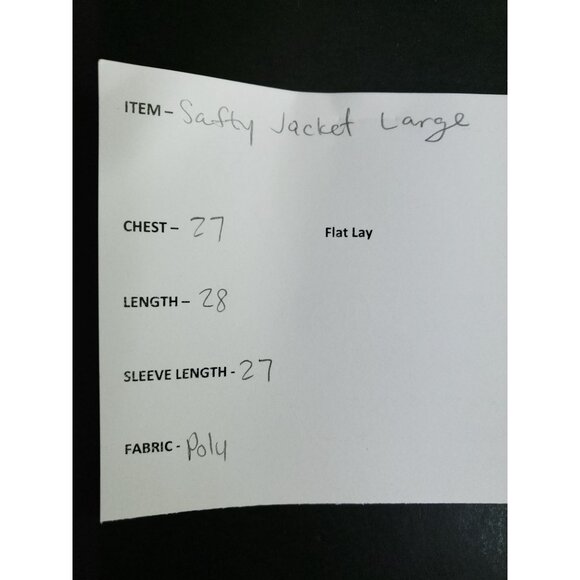 ITEM – Safty Jacket Large
CHEST – 27 Flat Lay
LENGTH – 28
SLEEVE LENGTH - 27
FABRIC - Poly